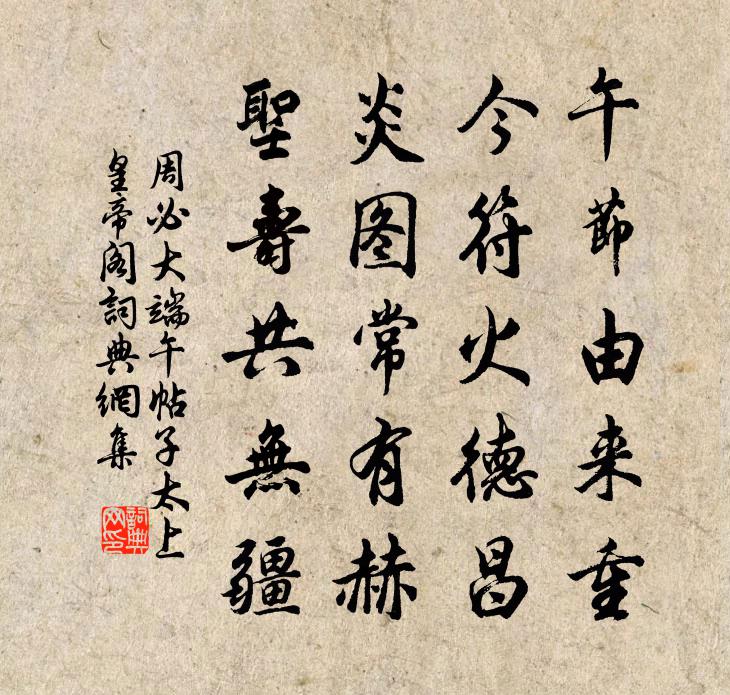 午節由来重
今符火德昌
炎图常有赫
聖壽共無疆
周必大端午帖子太上
皇帝阁詞典網集
詞典网印